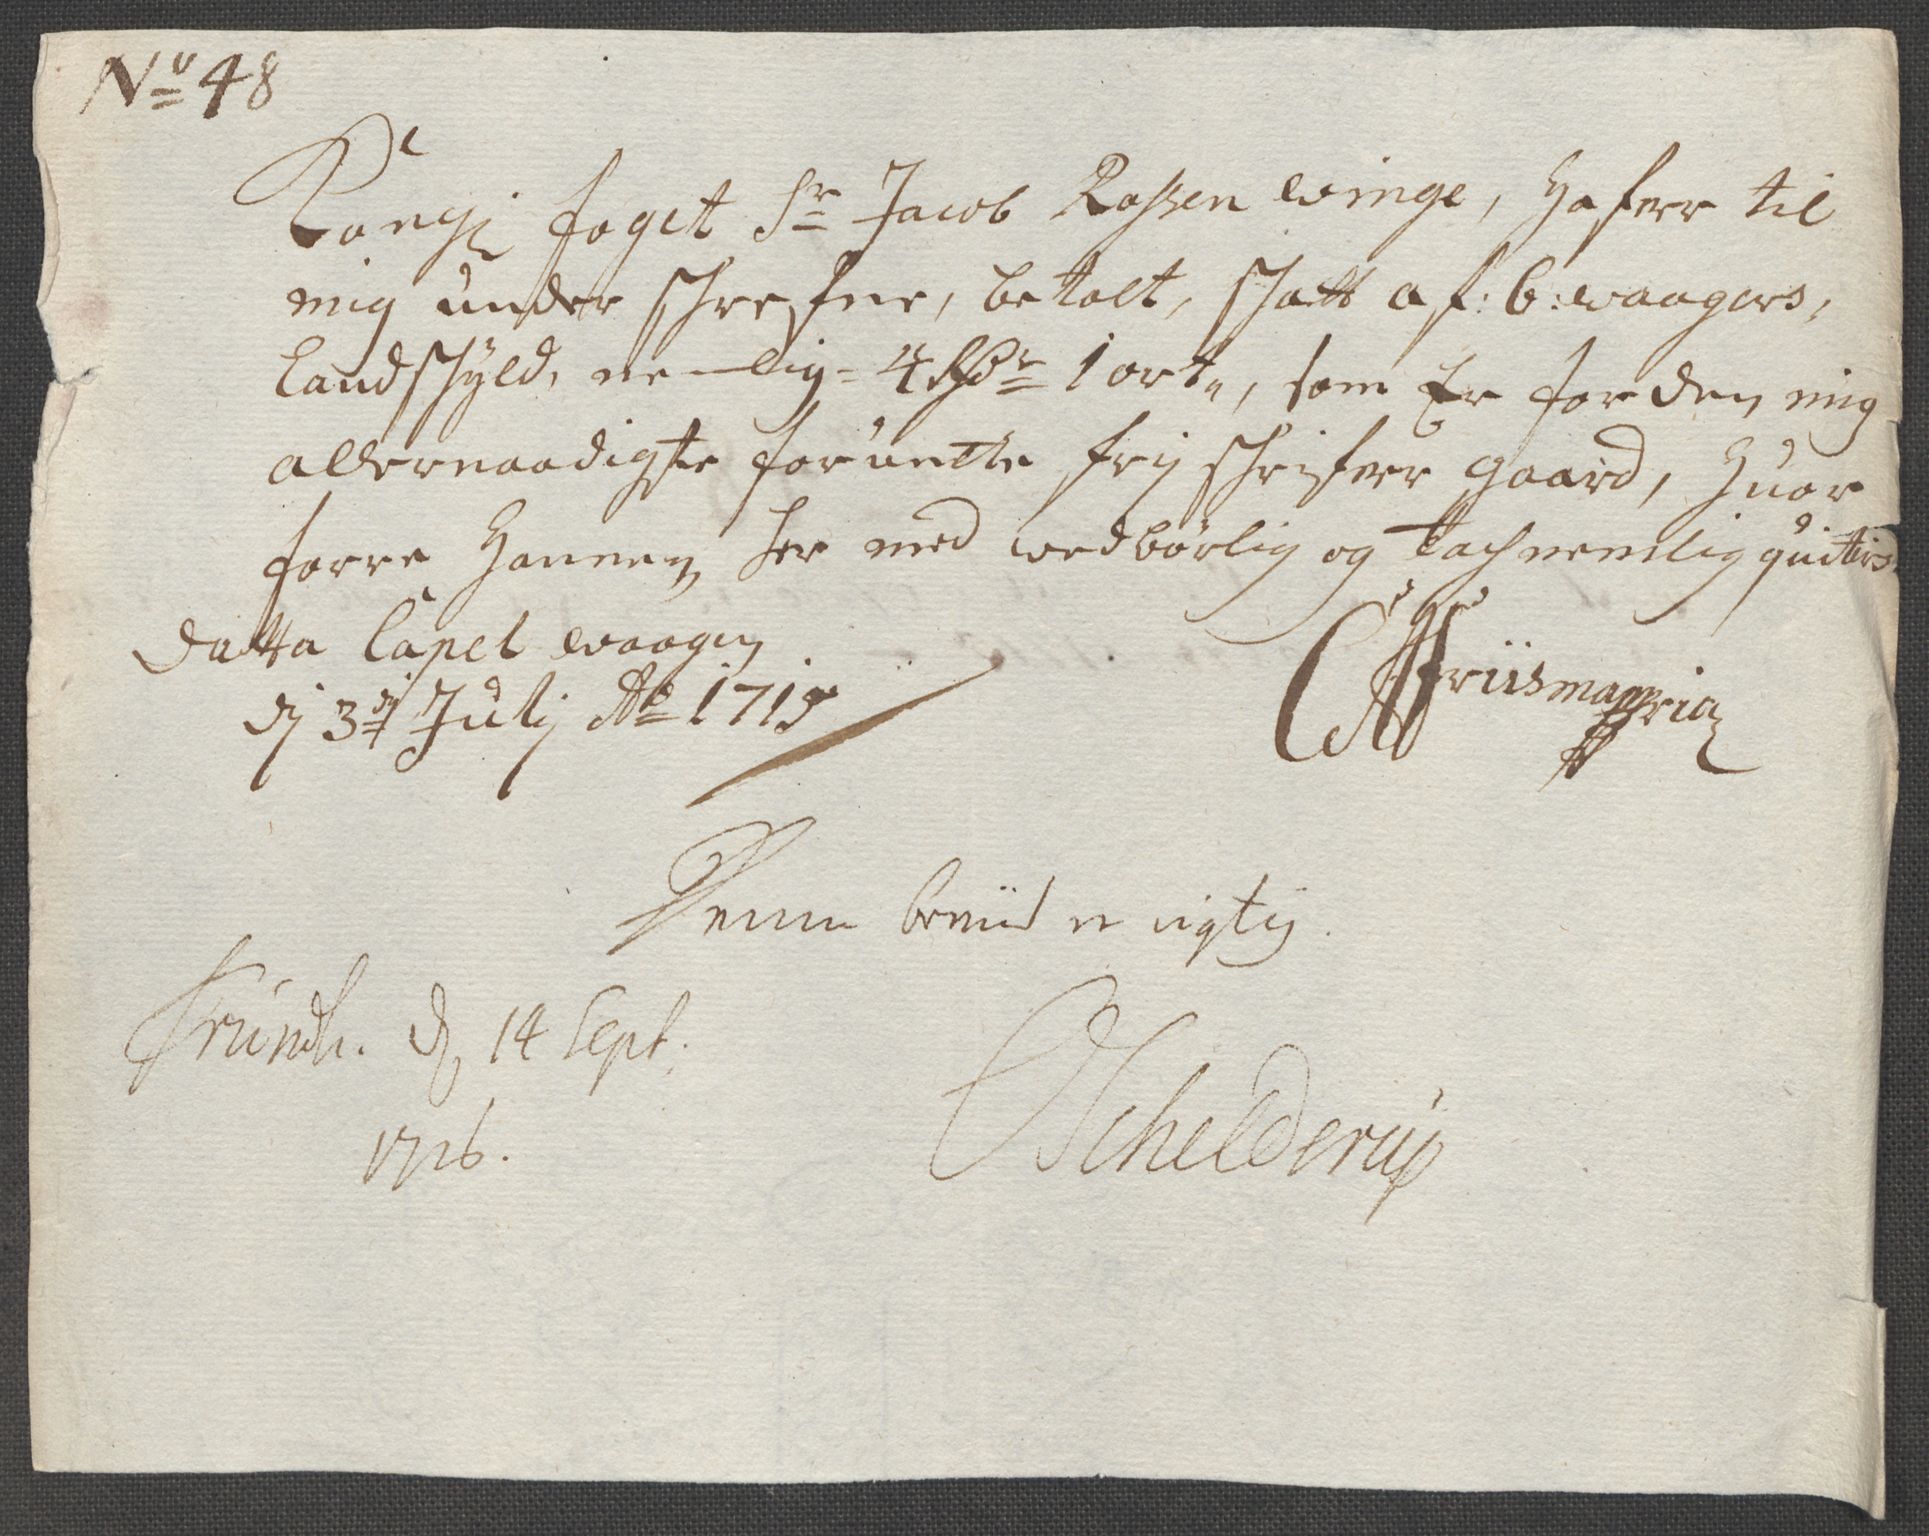 No 48
Kongl foget Sr Jacob Rossen winge, Hafver til
mig under schrefne, betalt, schatt af: 6: waagers,
Landschyld, nemlig = 4 Rdr 1 ort, som Er for den mig
allernaadigste forundte frij schrifver gaard, Huor
forre Hannem her med wedbørlig og tachnemlig quiteris
Datta Capel waagen
dj 3dj Julij Ao 1715
Friismanpria
Denne breud er rigtig.
Trundh. d 14 Sept.
1716.
Schelderup